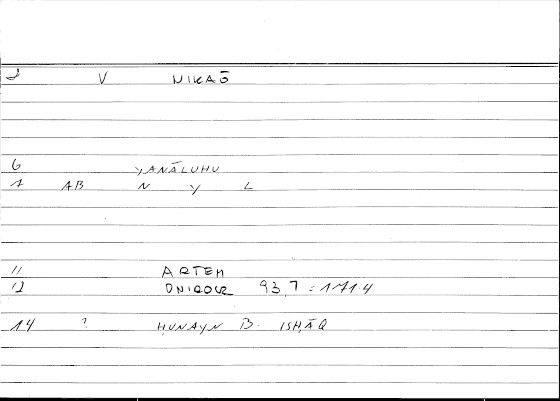 2 V NIKAŌ
6 YANĀLUHU
7 AB N Y L
11 ARTEM
12 ONIROCR 93,7 = 171.4
14 ? ḤUNAYN B. ISḤĀQ